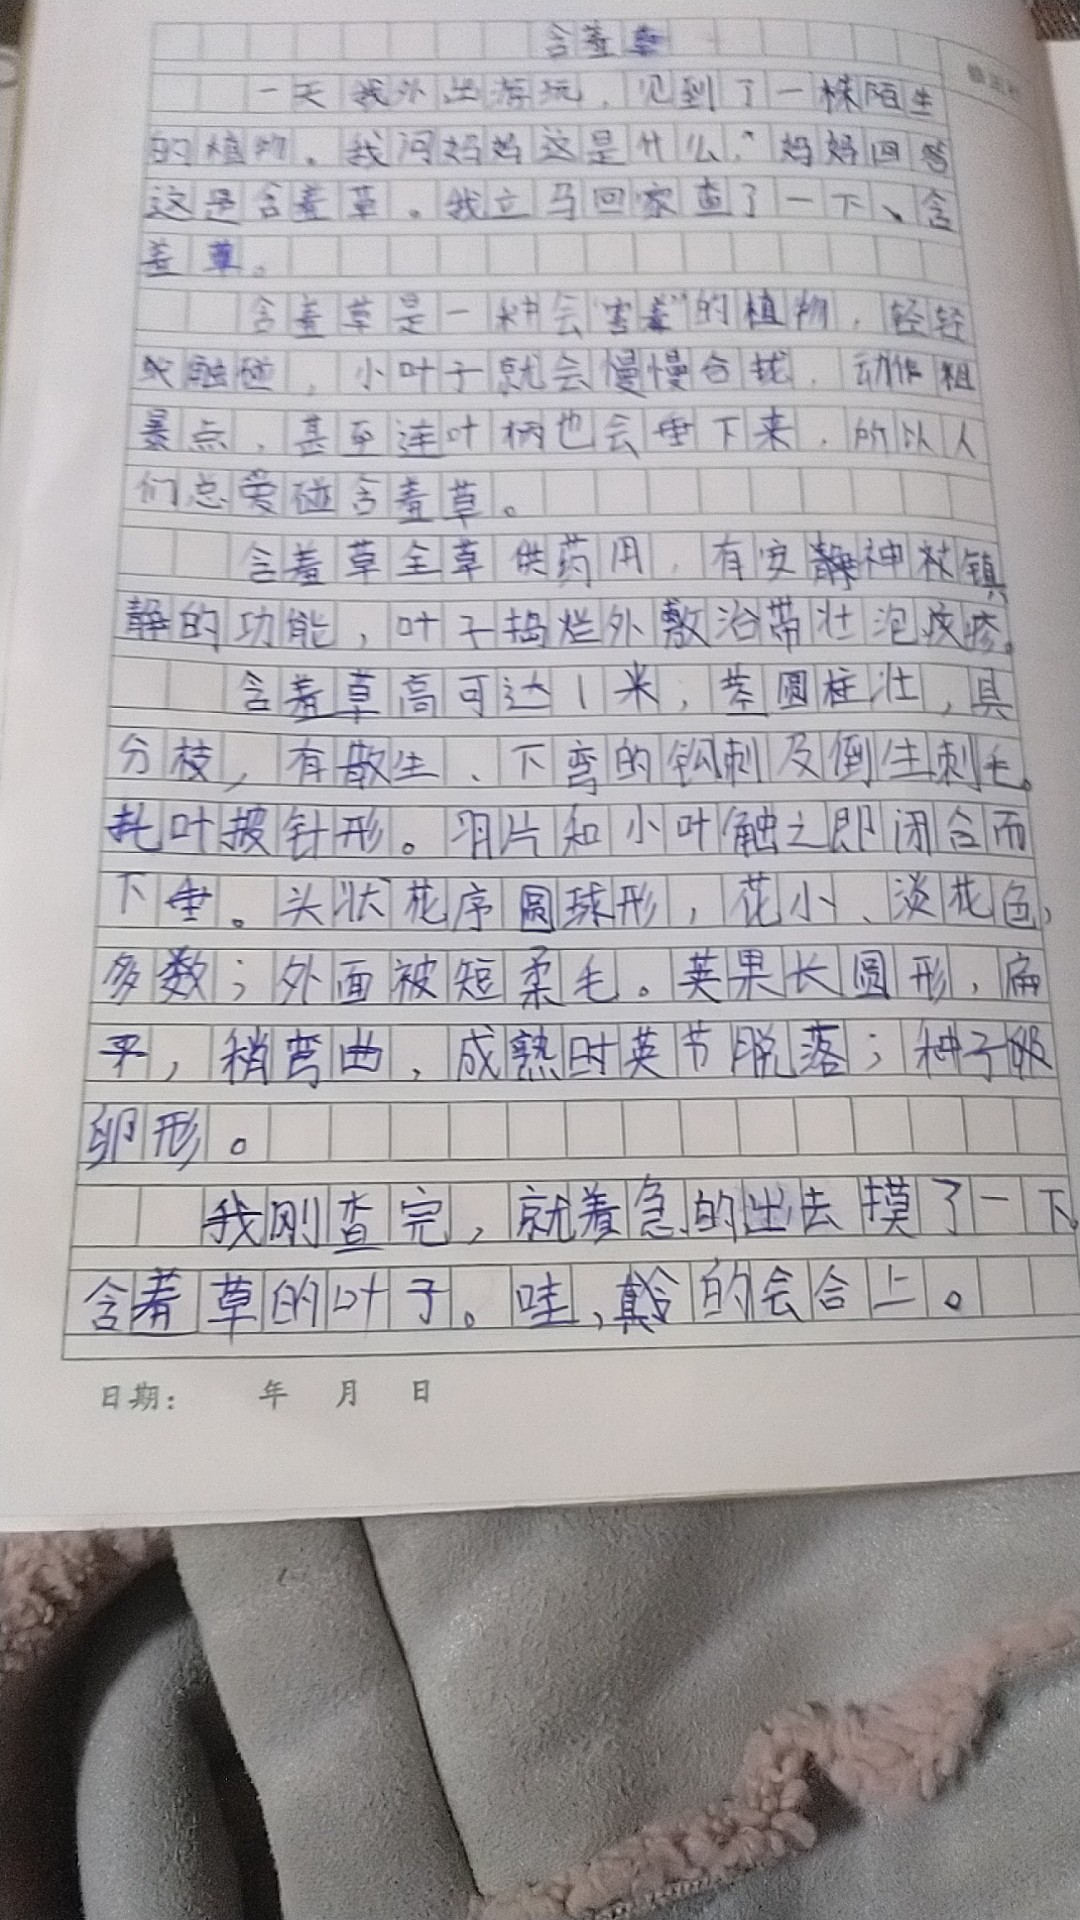 含羞草
一天我外出游玩，见到了一株陌生
的植物。我问妈妈这是什么，"妈妈回答
这是含羞草。我立马回家查了一下、含
羞草。
含羞草是一种会"害羞"的植物，轻轻
触碰，小叶子就会慢慢合拢，动作粗
暴点，甚至连叶柄也会垂下来，所以人
们总爱碰含羞草。
含羞草全草供药用，有安静神衼镇
静的功能，叶子捣烂外敷治带壮泡疹。
含羞草高可达1米，茎圆柱壮，具
分枝，有散生、下弯的钩刺及倒生刺毛。
托叶披针形。羽片和小叶触之即闭合而
下垂。头状花序圆球形，花小、淡花色，
多数；外面被短柔毛。荚果长圆形，扁
平，稍弯曲，成熟时荚节脱落；种子
卵形。
我刚查完，就着急的出去摸了一下
含羞草的叶子。哇，真的会合上。
日期： 年 月 日